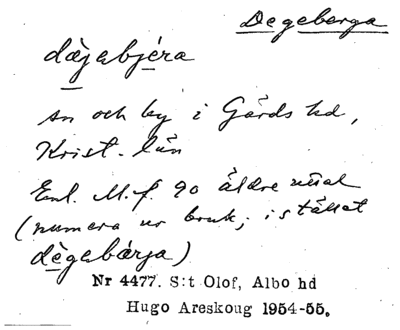 Degeberga
dàjabjéra
sn och by i Gärds hd,
Krist. län
Enl. M.f. 90 äldre uttal
(numera ur bruk; i stället
dègabärja)
Nr 4477. S:t Olof, Albo hd
Hugo Areskoug 1954-55.